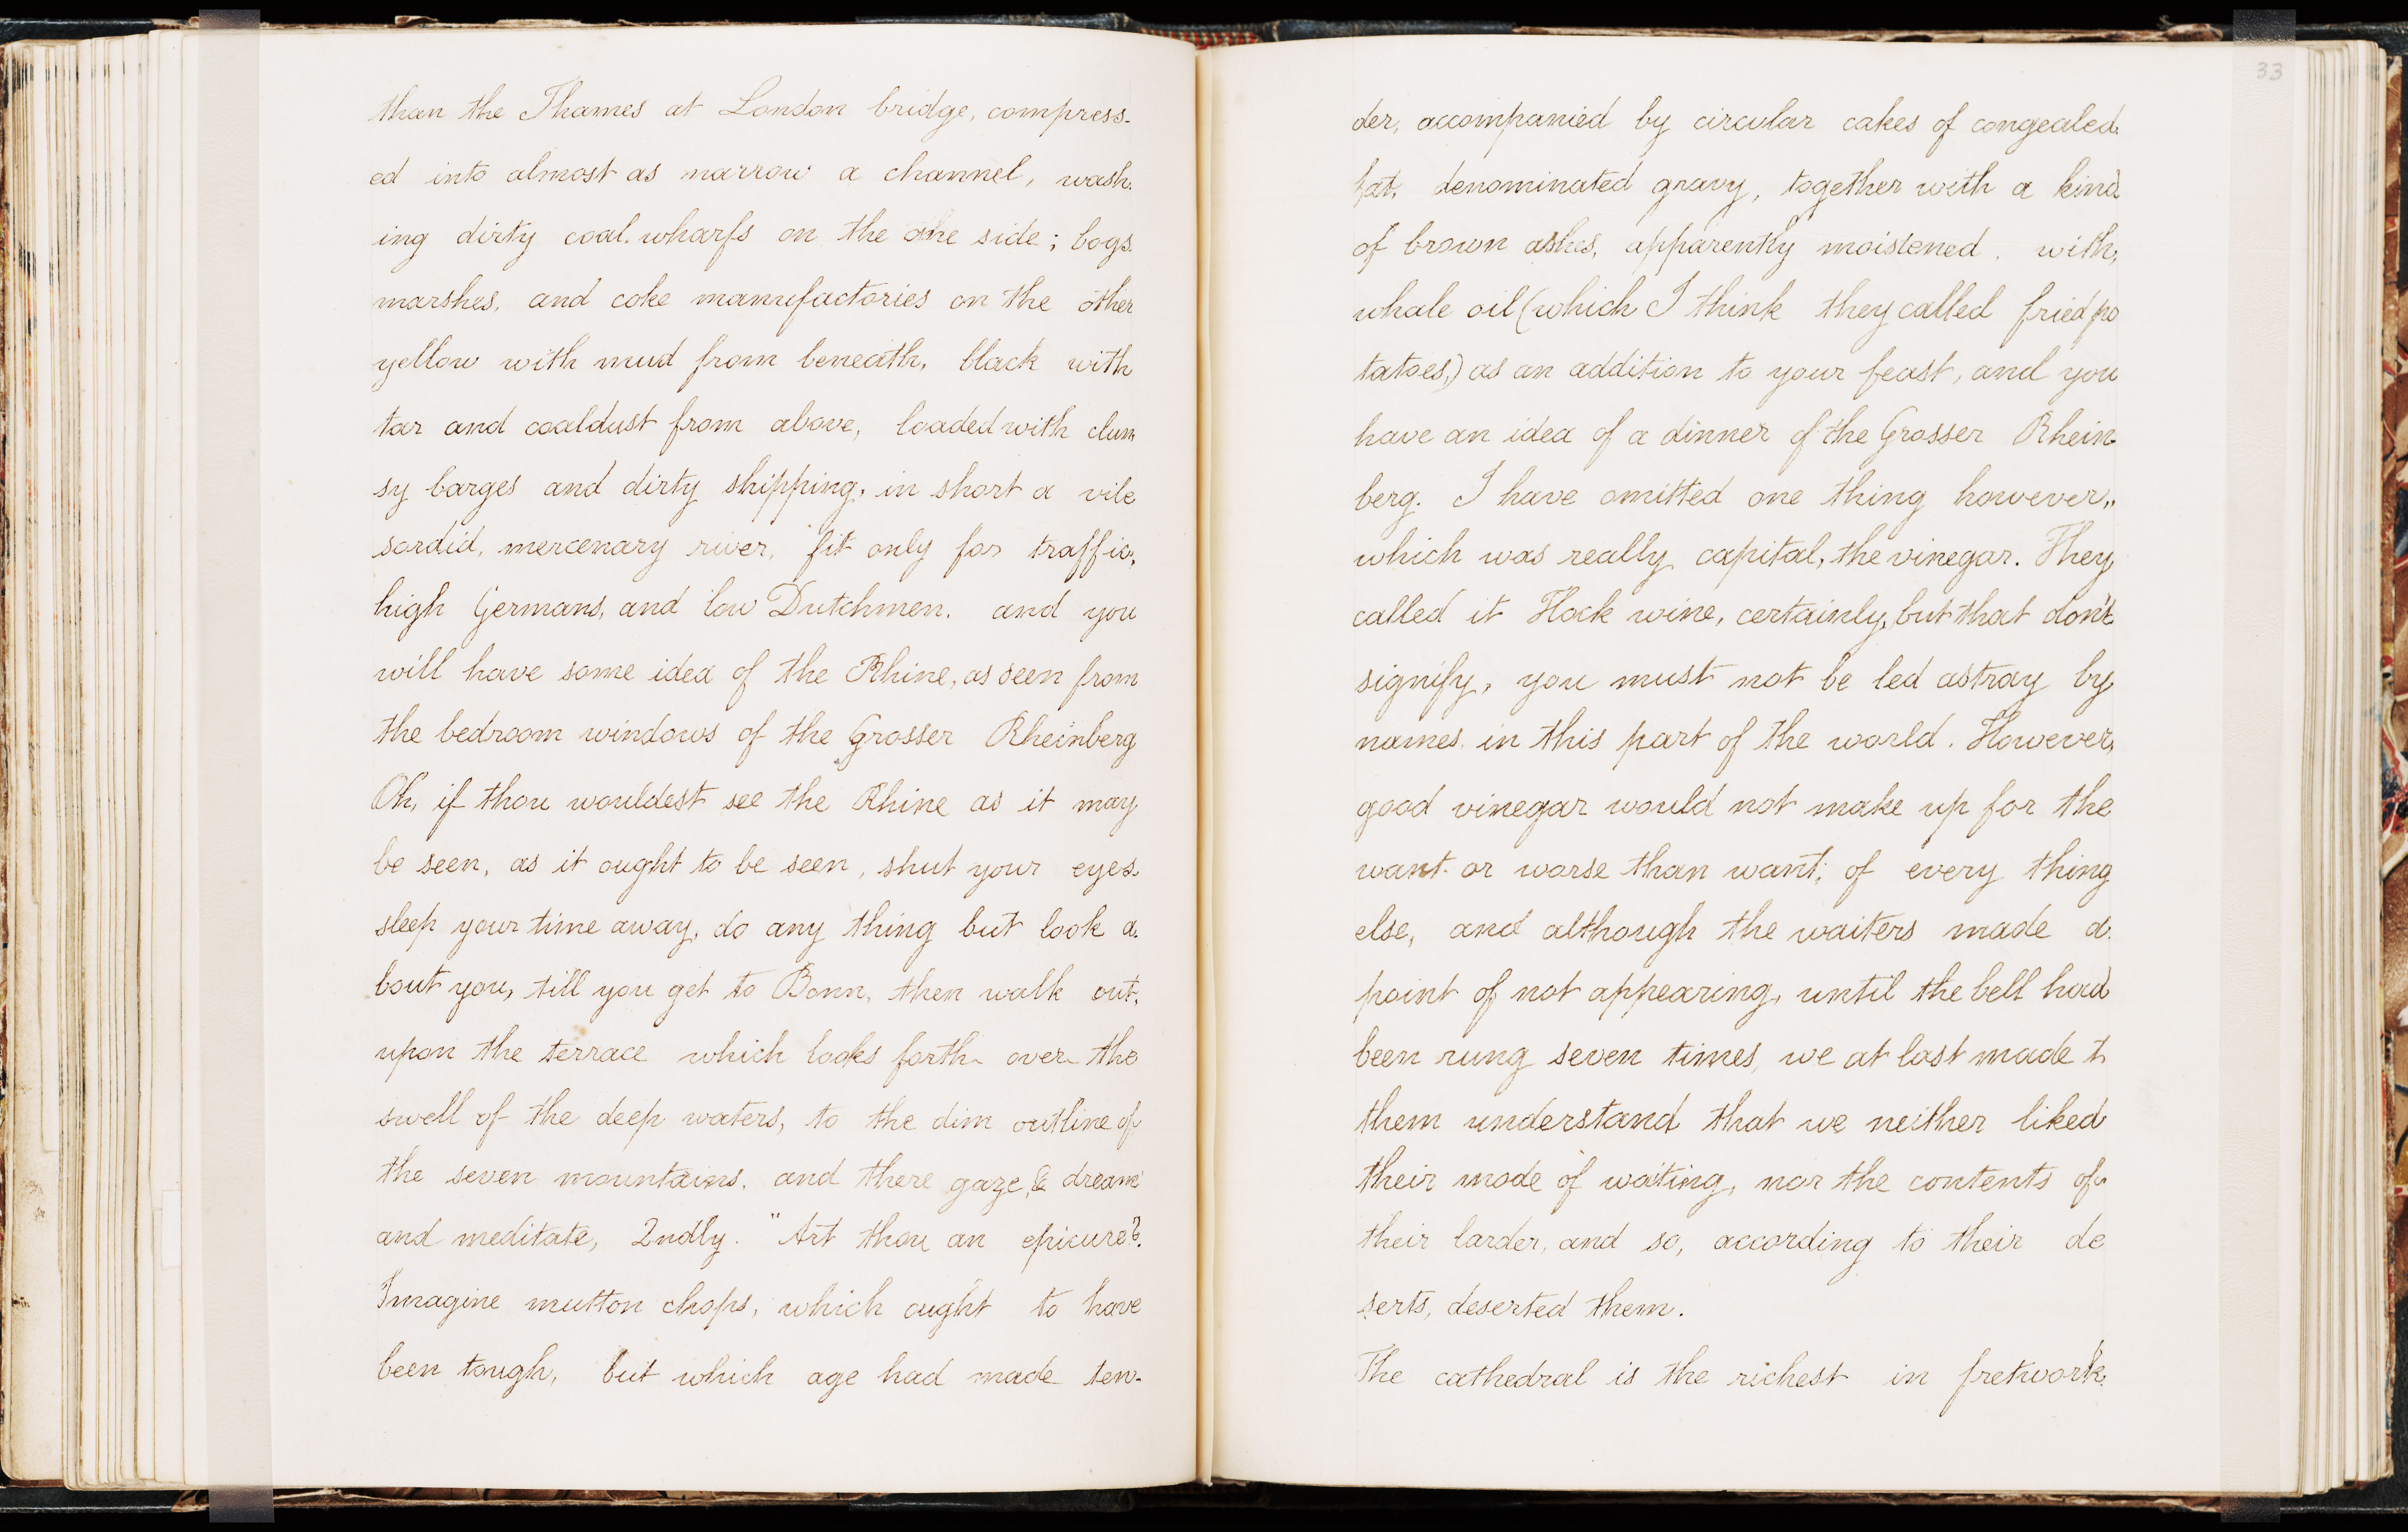 than the Thames at London bridge, compress-
ed into almost as narrow a channel, wash-
ing dirty coal-wharfs on the one side; bogs
marshes, and coke manufactories on the other
yellow with mud from beneath, black with
tar and coaldust from above, loaded with clum
sy barges and dirty shipping, in short a vile
sordid, mercenary river, fit only for traffic,
high Germans, and low Dutchmen, and you
will have some idea of the Rhine, as seen from
the bedroom windows of the Grosser Rheinberg
Oh, if thou wouldest see the Rhine as it may
be seen, as it ought to be seen, shut your eyes
sleep your time away, do any thing but look a-
bout you, till you get to Bonn, then walk out,
upon the terrace which looks forth over the
swell of the deep waters, to the dim outline of
the seven mountains, and there gaze, & dream
and meditate, 2ndly. "Art thou an epicure?
Imagine mutton chops, which ought to have
been tough, but which age had made ten-
33
der, accompanied by circular cakes of congealed
fat, denominated gravy, together with a kind
of brown ashes, apparently moistened with
whale oil (which I think they called fried po
tatoes,) as an addition to your feast, and you
have an idea of a dinner of the Grosser Rhein
berg. I have omitted one thing however,
which was really capital, the vinegar. They
called it Hock wine, certainly, but that don't
signify, you must not be led astray by
names in this part of the world. However,
good vinegar would not make up for the
want or worse than want; of every thing
else, and although the waiters made a
point of not appearing, until the bell had
been rung seven times, we at last made t
them understand that we neither liked
their mode of waiting, nor the contents of
their larder, and so, according to their de
serts, deserted them.
The cathedral is the richest in fretwork